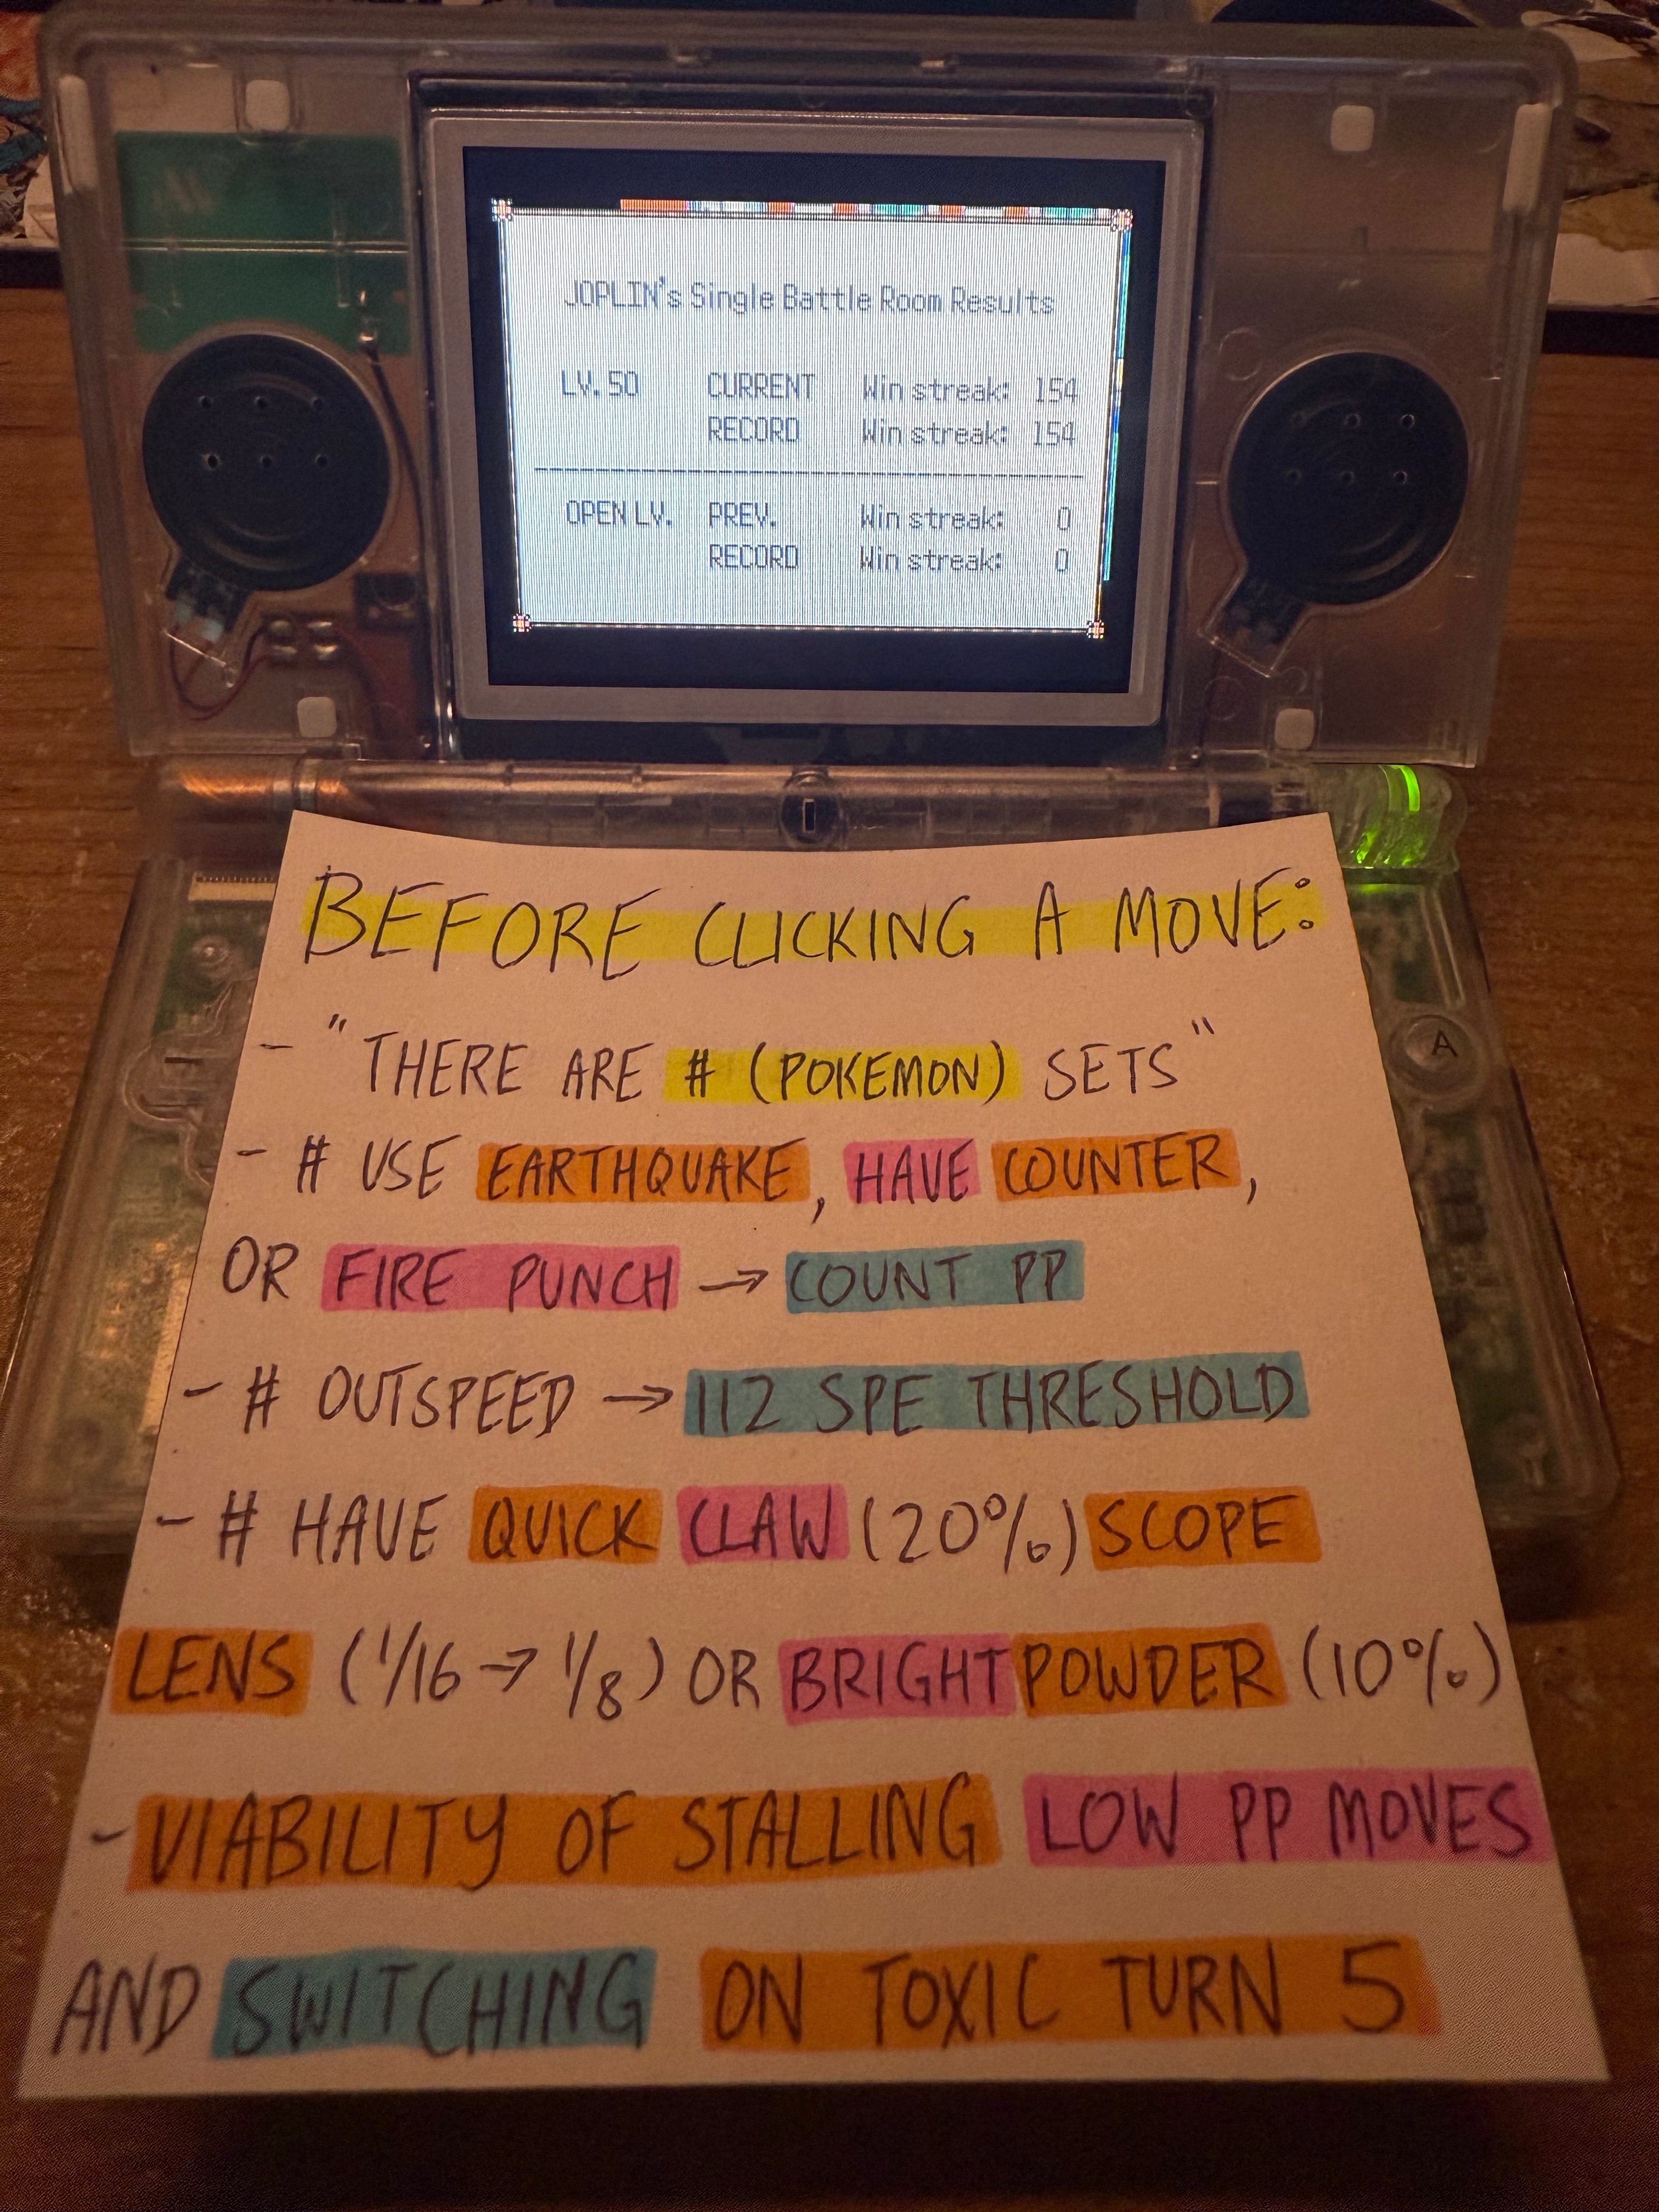 JOPLIN's Single Battle Room Results
LV. 50 CURRENT Win streak: 154
RECORD Win streak: 154
OPEN LV. PREV. Win streak: 0
RECORD Win streak: 0
A
BEFORE CLICKING A MOVE:
- "THERE ARE # (POKEMON) SETS"
- # USE EARTHQUAKE, HAVE COUNTER,
OR FIRE PUNCH → COUNT PP
- # OUTSPEED → 112 SPE THRESHOLD
- # HAVE QUICK CLAW (20%) SCOPE
LENS (1/16 → 1/8) OR BRIGHTPOWDER (10%)
- VIABILITY OF STALLING LOW PP MOVES
AND SWITCHING ON TOXIC TURN 5